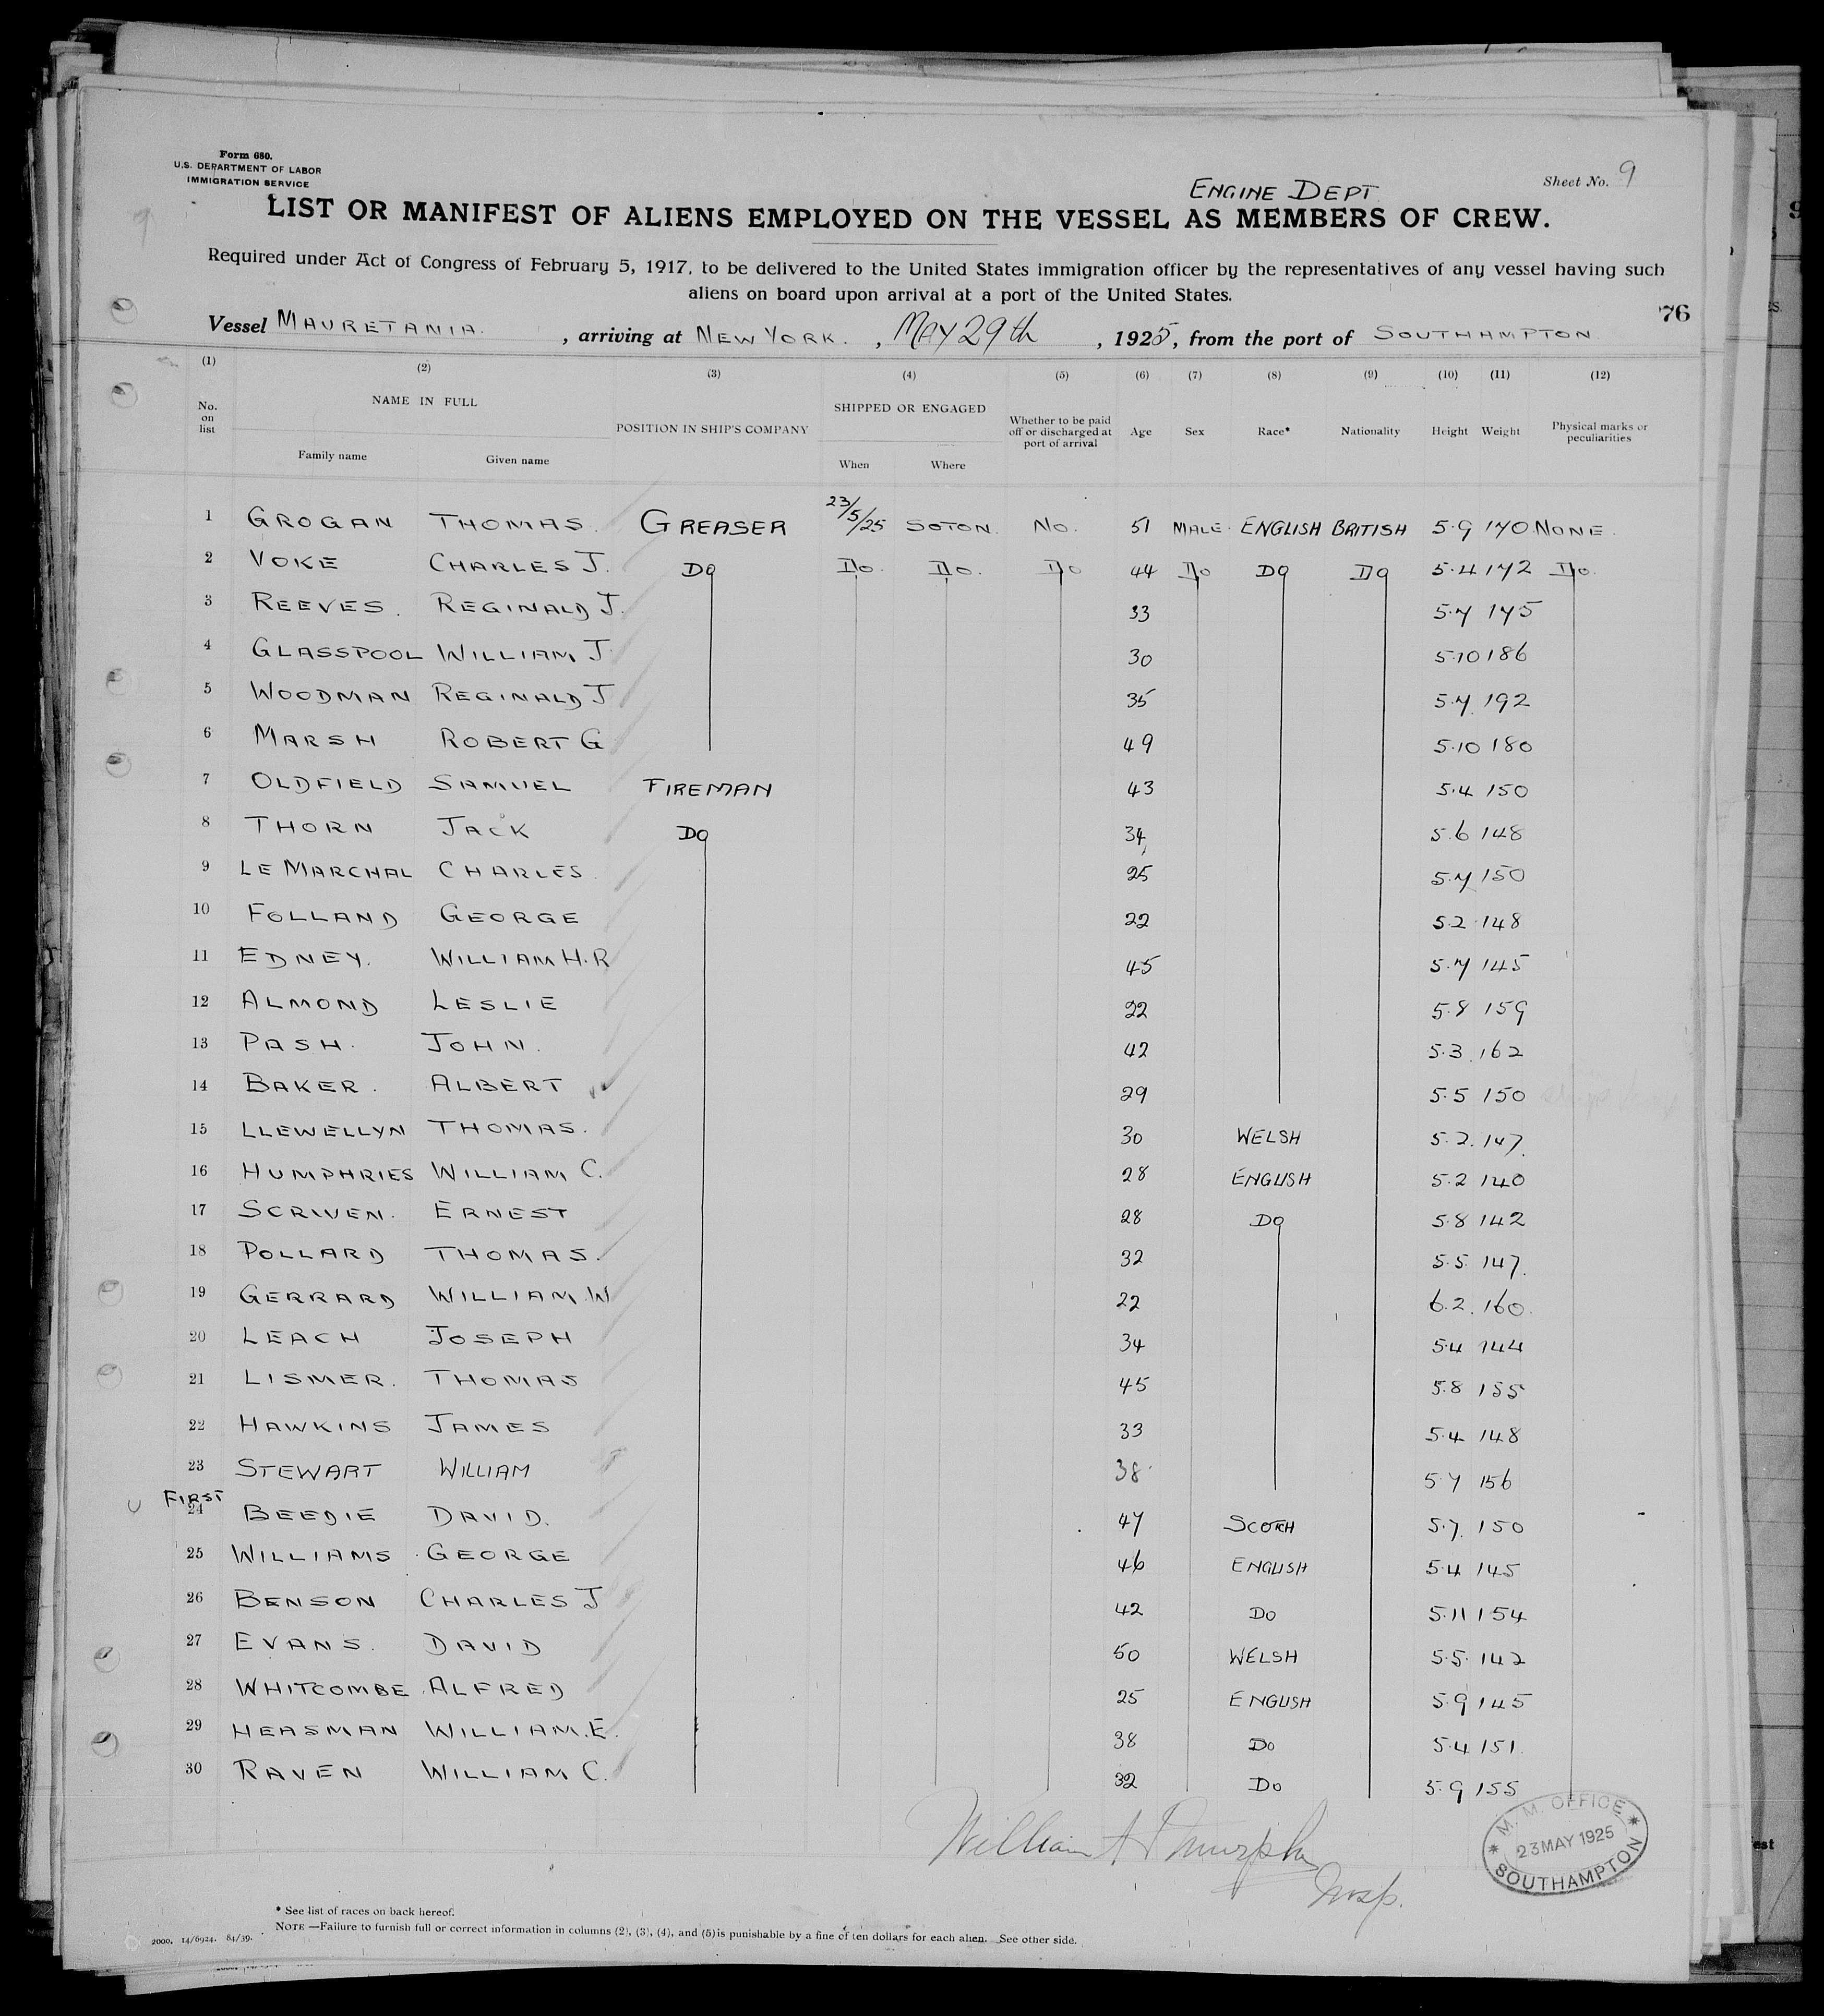 Form 680.
U.S. DEPARTMENT OF LABOR
IMMIGRATION SERVICE
Sheet No. 9
ENGINE DEPT
LIST OR MANIFEST OF ALIENS EMPLOYED ON THE VESSEL AS MEMBERS OF CREW.
Required under Act of Congress of February 5, 1917, to be delivered to the United States immigration officer by the representatives of any vessel having such
aliens on board upon arrival at a port of the United States.
76
Vessel MAURETANIA. , arriving at NEW YORK. , MAY 29th , 1925, from the port of SOUTHAMPTON.
(1) (2) (3) (4) (5) (6) (7) (8) (9) (10) (11) (12)
No. on list NAME IN FULL POSITION IN SHIP'S COMPANY SHIPPED OR ENGAGED Whether to be paid off or discharged at port of arrival Age Sex Race* Nationality Height Weight Physical marks or peculiarities
Family name Given name When Where
1 GROGAN THOMAS. GREASER 23/5/25 SOTON. No. 51 MALE. ENGLISH BRITISH 5.9 170 NONE.
2 VOKE CHARLES J. Do Do. Do. Do 44 Do Do Do 5.4 172 Do.
3 REEVES. REGINALD J. 33 5.7 175
4 GLASSPOOL WILLIAM J. 30 5.10 186
5 WOODMAN REGINALD J 35 5.7. 192
6 MARSH ROBERT G 49 5.10 180
7 OLDFIELD SAMUEL FIREMAN 43 5.4 150
8 THORN JACK Do 34 5.6 148
9 LE MARCHAL CHARLES. 25 5.7 150
10 FOLLAND GEORGE 22 5.2 148
11 EDNEY. WILLIAM H.R 45 5.7 145
12 ALMOND LESLIE 22 5.8 159
13 PASH. JOHN. 42 5.3. 162
14 BAKER. ALBERT 29 5.5 150
15 LLEWELLYN THOMAS. 30 WELSH 5.2. 147.
16 HUMPHRIES WILLIAM C. 28 ENGLISH 5.2 140
17 SCRIVEN. ERNEST 28 Do 5.8 142
18 POLLARD THOMAS. 32 5.5. 147.
19 GERRARD WILLIAM.W 22 6.2. 160.
20 LEACH JOSEPH 34 5.4 144
21 LISMER. THOMAS 45 5.8 155
22 HAWKINS JAMES 33 5.4 148
23 STEWART WILLIAM 38 5.7 156
FIRST
24 BEEDIE DAVID. 47 SCOTCH 5.7. 150
25 WILLIAMS GEORGE 46 ENGLISH 5.4 145
26 BENSON CHARLES J 42 Do 5.11 154
27 EVANS. DAVID 50 WELSH 5.5. 142
28 WHITCOMBE ALFRED 25 ENGLISH 5.9 145
29 HEASMAN WILLIAM.E. 38 Do 5.4 151.
30 RAVEN WILLIAM C. 32 Do 5.9 155
William A Murphy
Insp.
M. M. OFFICE
23 MAY 1925
SOUTHAMPTON
* See list of races on back hereof.
NOTE.—Failure to furnish full or correct information in columns (2), (3), (4), and (5) is punishable by a fine of ten dollars for each alien. See other side.
2000. 14/6924. 84/39.